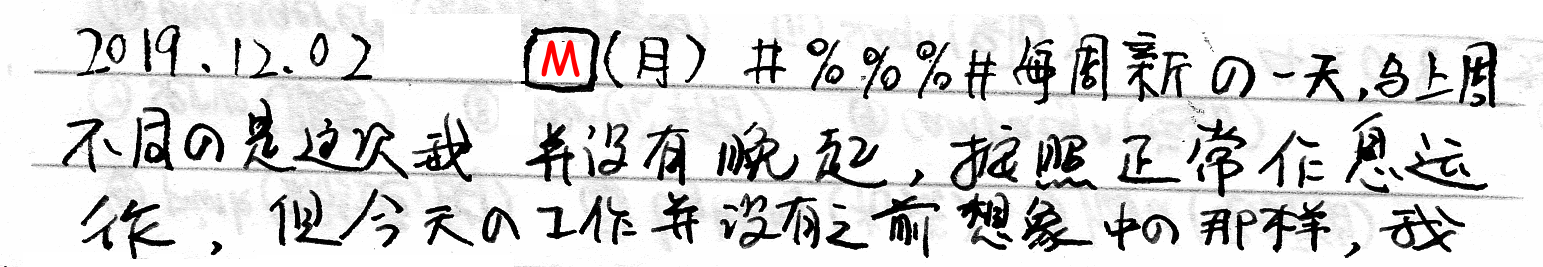 2019.12.02 M(月) #%%%#每周新の一天,与上周
不同の是这次我 并没有晚起,按照正常作息运
作,但今天の工作并没有之前想象中の那样,我